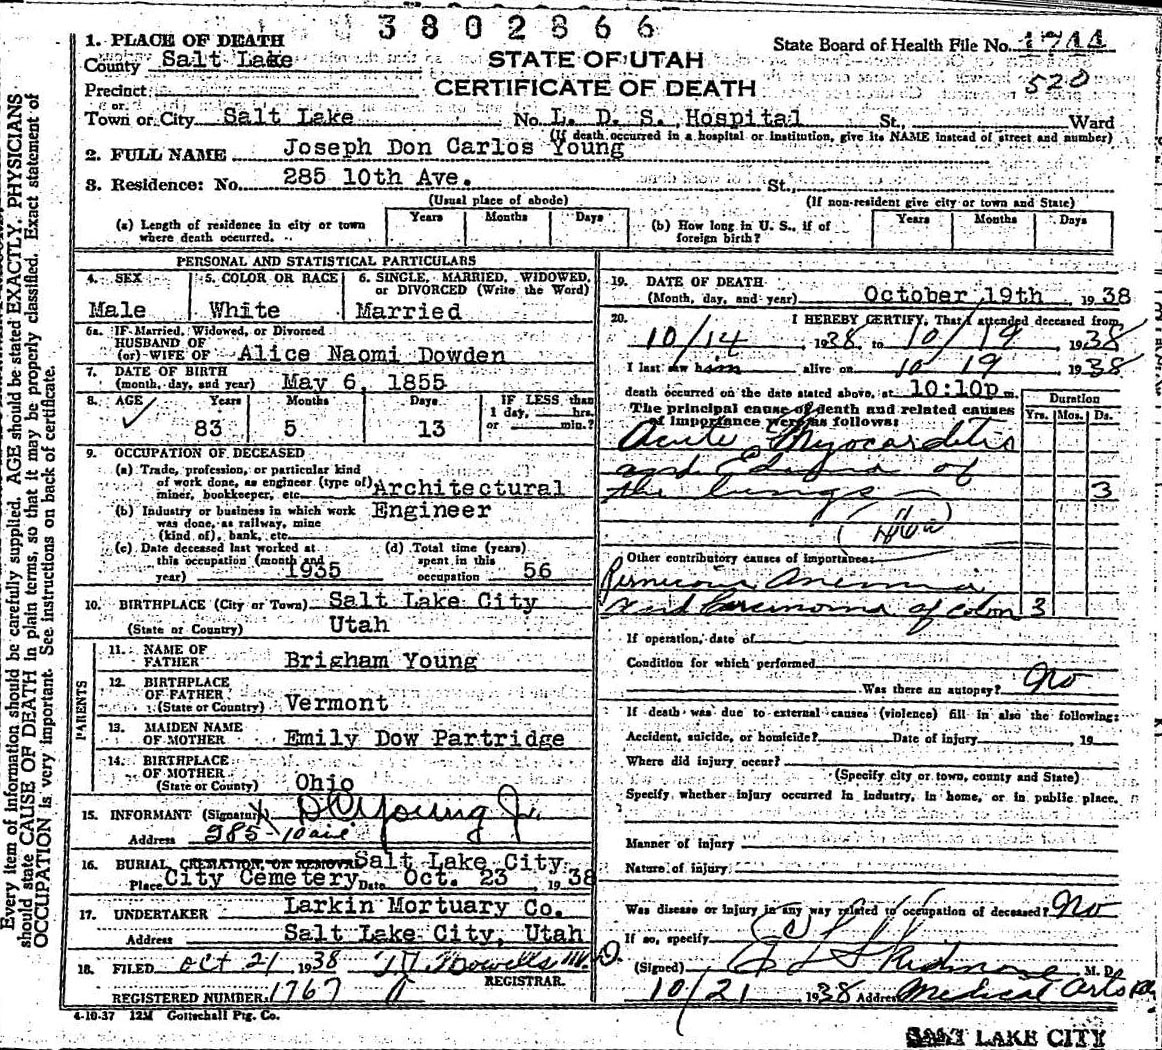 3802866
1. PLACE OF DEATH
County Salt Lake
STATE OF UTAH
State Board of Health File No. 1744
520
Precinct
CERTIFICATE OF DEATH
or
Town or City Salt Lake No. L. D. S. Hospital St., Ward
(If death occurred in a hospital or institution, give its NAME instead of street and number)
2. FULL NAME Joseph Don Carlos Young
3. Residence: No. 285 10th Ave. St.,
(Usual place of abode) (If non-resident give city or town and State)
(a) Length of residence in city or town where death occurred. Years Months Days
(b) How long in U. S., if of foreign birth? Years Months Days
PERSONAL AND STATISTICAL PARTICULARS
4. SEX 5. COLOR OR RACE 6. SINGLE, MARRIED, WIDOWED,
or DIVORCED (Write the Word)
Male White Married
6a. IF Married, Widowed, or Divorced
HUSBAND OF
(or) WIFE OF Alice Naomi Dowden
7. DATE OF BIRTH
(month, day, and year) May 6, 1855
8. AGE Years Months Days IF LESS than
1 day, hrs.
or min.?
83 5 13
9. OCCUPATION OF DECEASED
(a) Trade, profession, or particular kind
of work done, as engineer (type of)
miner, bookkeeper, etc. Architectural
(b) Industry or business in which work
was done, as railway, mine
(kind of), bank, etc. Engineer
(c) Date deceased last worked at
this occupation (month and
year) 1935
(d) Total time (years)
spent in this
occupation 56
10. BIRTHPLACE (City or Town) Salt Lake City
(State or Country) Utah
PARENTS
11. NAME OF
FATHER Brigham Young
12. BIRTHPLACE
OF FATHER
(State or Country) Vermont
13. MAIDEN NAME
OF MOTHER Emily Dow Partridge
14. BIRTHPLACE
OF MOTHER
(State or County) Ohio
15. INFORMANT (Signature) D C Young Jr.
Address 285-10 ave
16. BURIAL, CREMATION, OR REMOVAL Salt Lake City
Place City Cemetery Date Oct. 23, 1938
17. UNDERTAKER Larkin Mortuary Co.
Address Salt Lake City, Utah
18. FILED Oct 21 1938 M.D.
REGISTRAR.
REGISTERED NUMBER 1767
4-10-37 12M Gottschall Ptg. Co.
19. DATE OF DEATH
(Month, day, and year) October 19th 1938
20. I HEREBY CERTIFY, That I attended deceased from
10/14 1938, to 10/19 1938
I last saw him alive on 10 19 1938
death occurred on the date stated above, at 10:10p m.
The principal cause of death and related causes
of importance were as follows:
Duration
Yrs. Mos. Ds.
Acute Myocarditis
and Edema of
the lungs 3
Other contributory causes of importance:
Pernicious Anemia
and Carcinoma of colon 3
If operation, date of
Condition for which performed
Was there an autopsy? No
If death was due to external causes (violence) fill in also the following:
Accident, suicide, or homicide? Date of injury, 19
Where did injury occur?
(Specify city or town, county and State)
Specify whether injury occurred in industry, in home, or in public place.
Manner of injury
Nature of injury
Was disease or injury in any way related to occupation of deceased? No
If so, specify
(Signed) Skidmore M. D.
10/21 1938 Address Medical Arts
SALT LAKE CITY
Every item of information should be carefully supplied. AGE should be stated EXACTLY. PHYSICIANS
should state CAUSE OF DEATH in plain terms, so that it may be properly classified. Exact statement of
OCCUPATION is very important. See instructions on back of certificate.